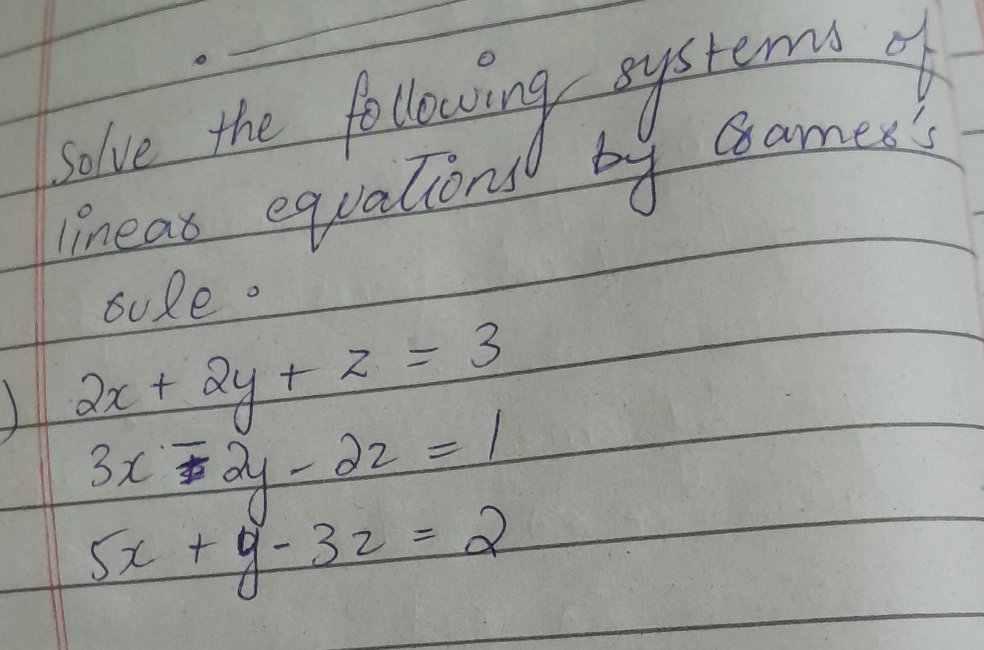 Solve the following systems of
linear equations by Cramer's
rule.
) 2x + 2y + z = 3
3x - 2y - 2z = 1
5x + y - 3z = 2